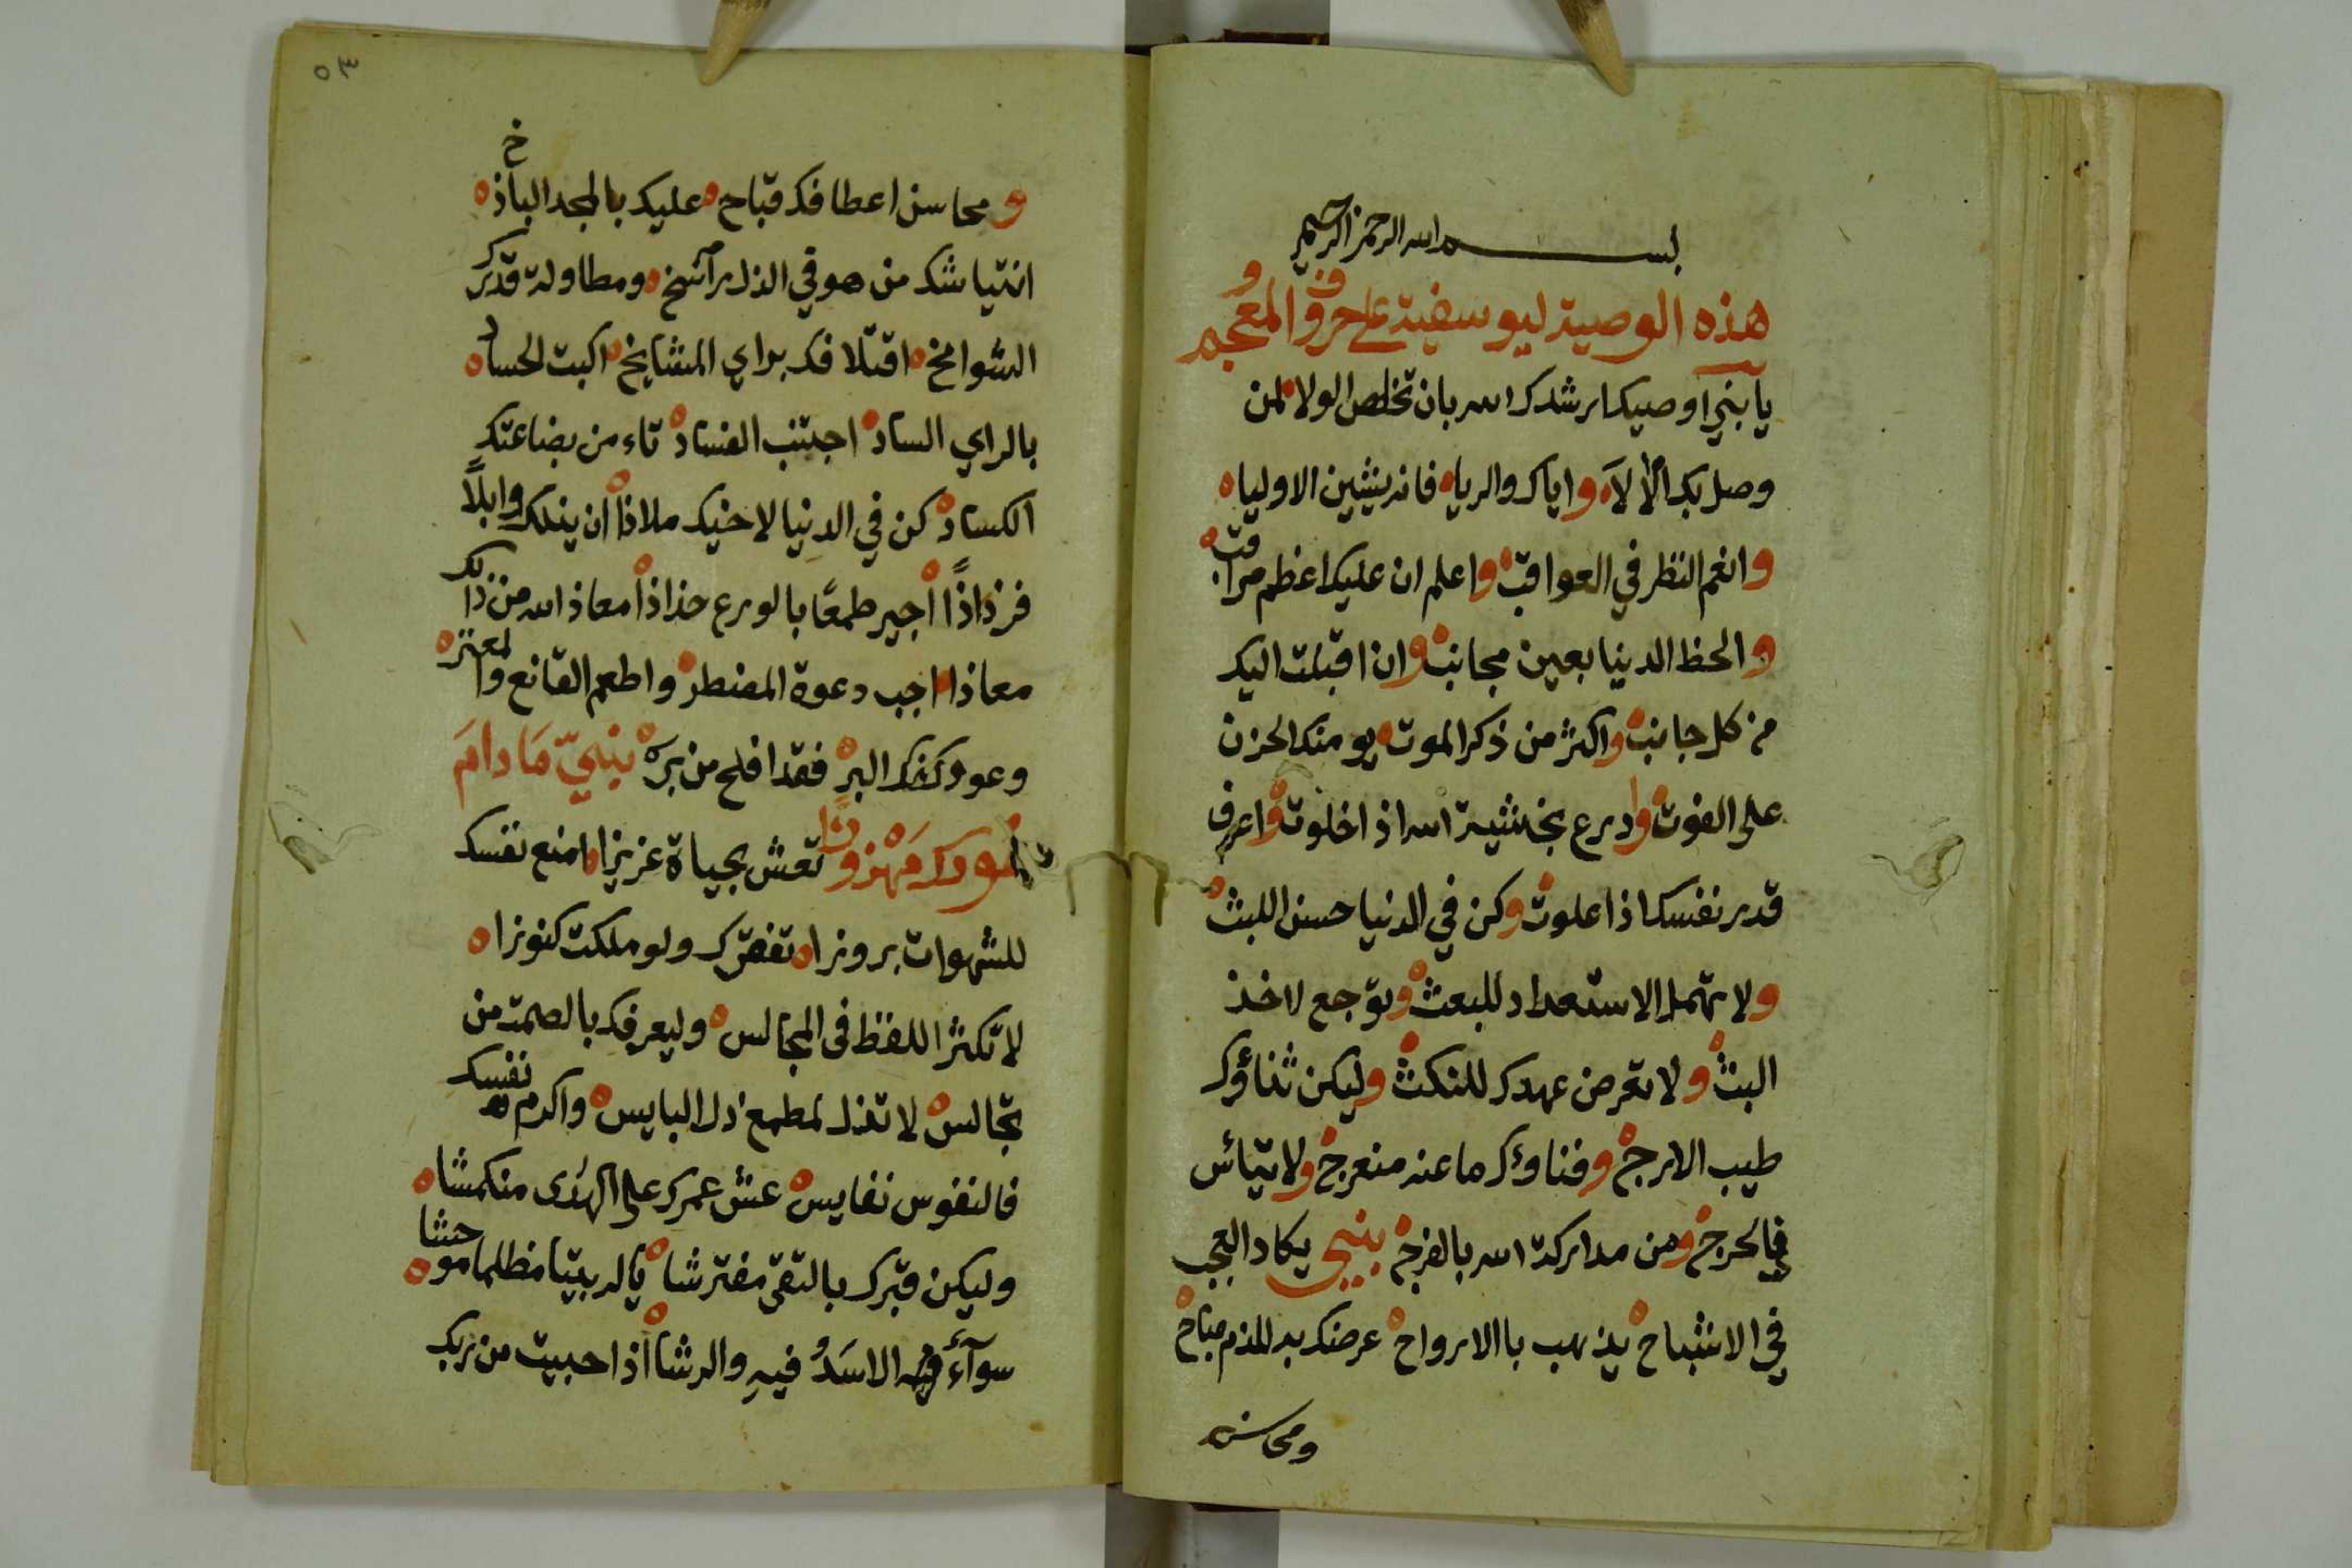 بسم الله الرحمن الرحيم
هذه الوصية ليوسفية على حروف المعجم
يا بني اوصيك ارشدك الله بان تخلص الولاء لمن
وصل بك الألآء واياك والرياء فانه يشين الاولياء
وانعم النظر في العواقب واعلم ان عليك اعظم مراقب
والحظ الدنيا بعين مجانب وان اقبلت اليك
من كل جانب واكثر من ذكر الموت يومنك الحزن
على الفوت وادرع بخشية الله اذا خلوت واعرف
قدر نفسك اذا علوت وكن في الدنيا حسن اللبث
ولا تهمل الاستعداد للبعث وتوجع لاخذ
البث ولا تعرض عهدك للنكث وليكن ثناؤك
طيب الارج وفناؤك ما عنه منعرج ولا تيأس
في الحرج ومن مداركة الله بالفرج بنيي يكاد العجب
في الاشباح يذهب باالارواح عرضك به للذم مباح
ومحاسن
٥٣
ومحاسن اعطافك قباح عليك بالمجد الباذخ
انتياشك من هو في الذل راسخ ومطاولة قدرك
الشوامخ اقتلافك براي المشايخ اكبت الحساد
بالراي الساد اجتنب الفساد تاء من بضاعتك
الكساد كن في الدنيا لاخيك ملاذا ان ينلك وابلاً
فرذاذاً اجير طمعًا بالورع حذاذا معاذ الله من ذالك
معاذا اجب دعوة المضطر واطعم القانع والمعتر
وعود كفك البر فقد افلح من بره بنيي مادام
تعش بحياة عزيزا امنع نفسك
للشهوات بروزا تفقرك ولو ملكت كنوزا
لا تكثر اللفظ فى المجالس وليعرفك بالصمت من
تجالس لا تذل لمطمع ذل البايس واكرم نفسك
فالنفوس نفايس عش عمرك على الهدى منكمشا
وليكن قبرك بالتقى مفترشا ياله بيتا مظلما موحشا
سوآء فيه الاسد فيه والرشا اذا حبيت من ربك